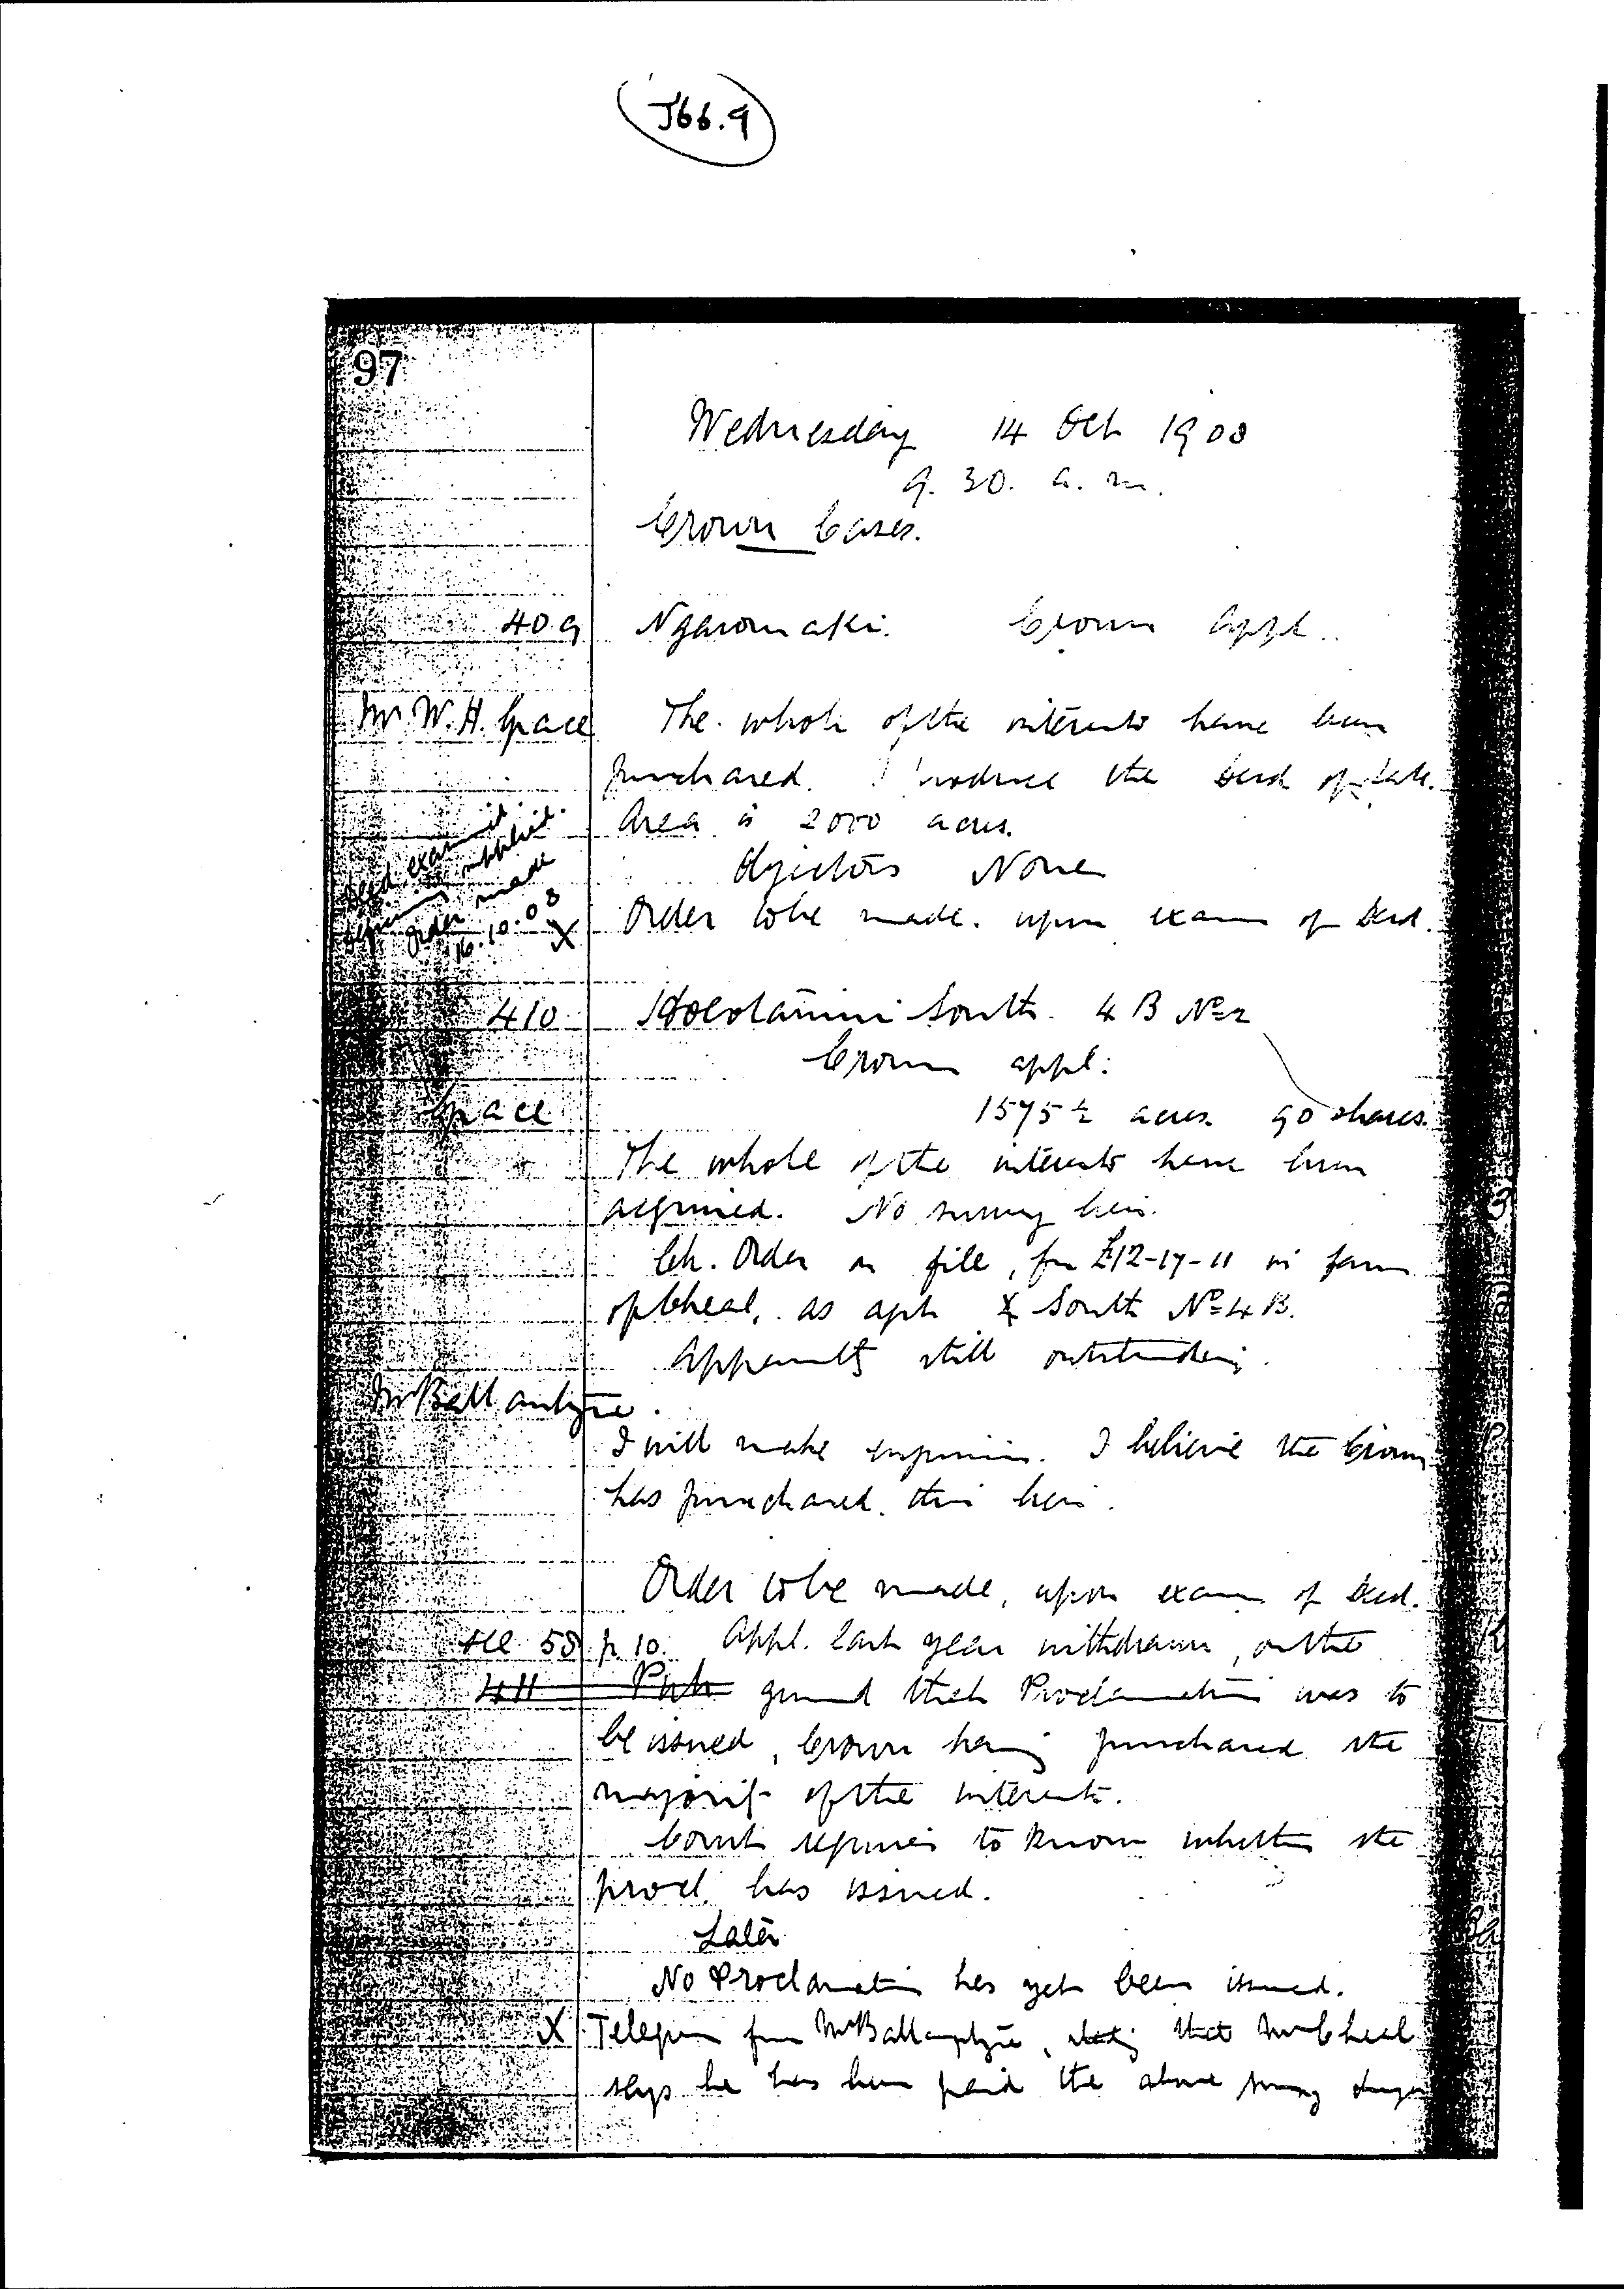 J66.9
97
Wednesday 14 Oct 1908
9. 30. a. m.
Crown Cases.
409 Ngaromaki. Crown Appl.
Mr W. H. Grace The whole of the interests have been
purchased. I produce the deed of sale.
Area is 2000 acres.
Objectors None
Order to be made. upon exam of Deed.
Deed examined.
supplied.
Order made
16.10.08
X
410 South. 4 B No 2
Crown appl:
Grace 1575½ acres. 90 shares.
The whole of the interests have been
acquired. No survey lien.
Ch. Order on file, for £12-17-11 in favour
of Cheal, as agst X South No 4 B.
Apparently still outstanding.
Mr Ballantyne.
I will make inquiries. I believe the Crown
has purchased this lien.
Order to be made, upon exam of Deed.
see 58 p. 10. Appl. last year withdrawn, on the
411 ground that Proclamation was to
be issued, Crown having purchased the
majority of the interests.
Court requires to know whether the
procl. has issued.
Later
No Proclamation has yet been issued.
X Telegram from Mr Ballantyne, stating that Mr Cheal
says he has been paid the above survey charges